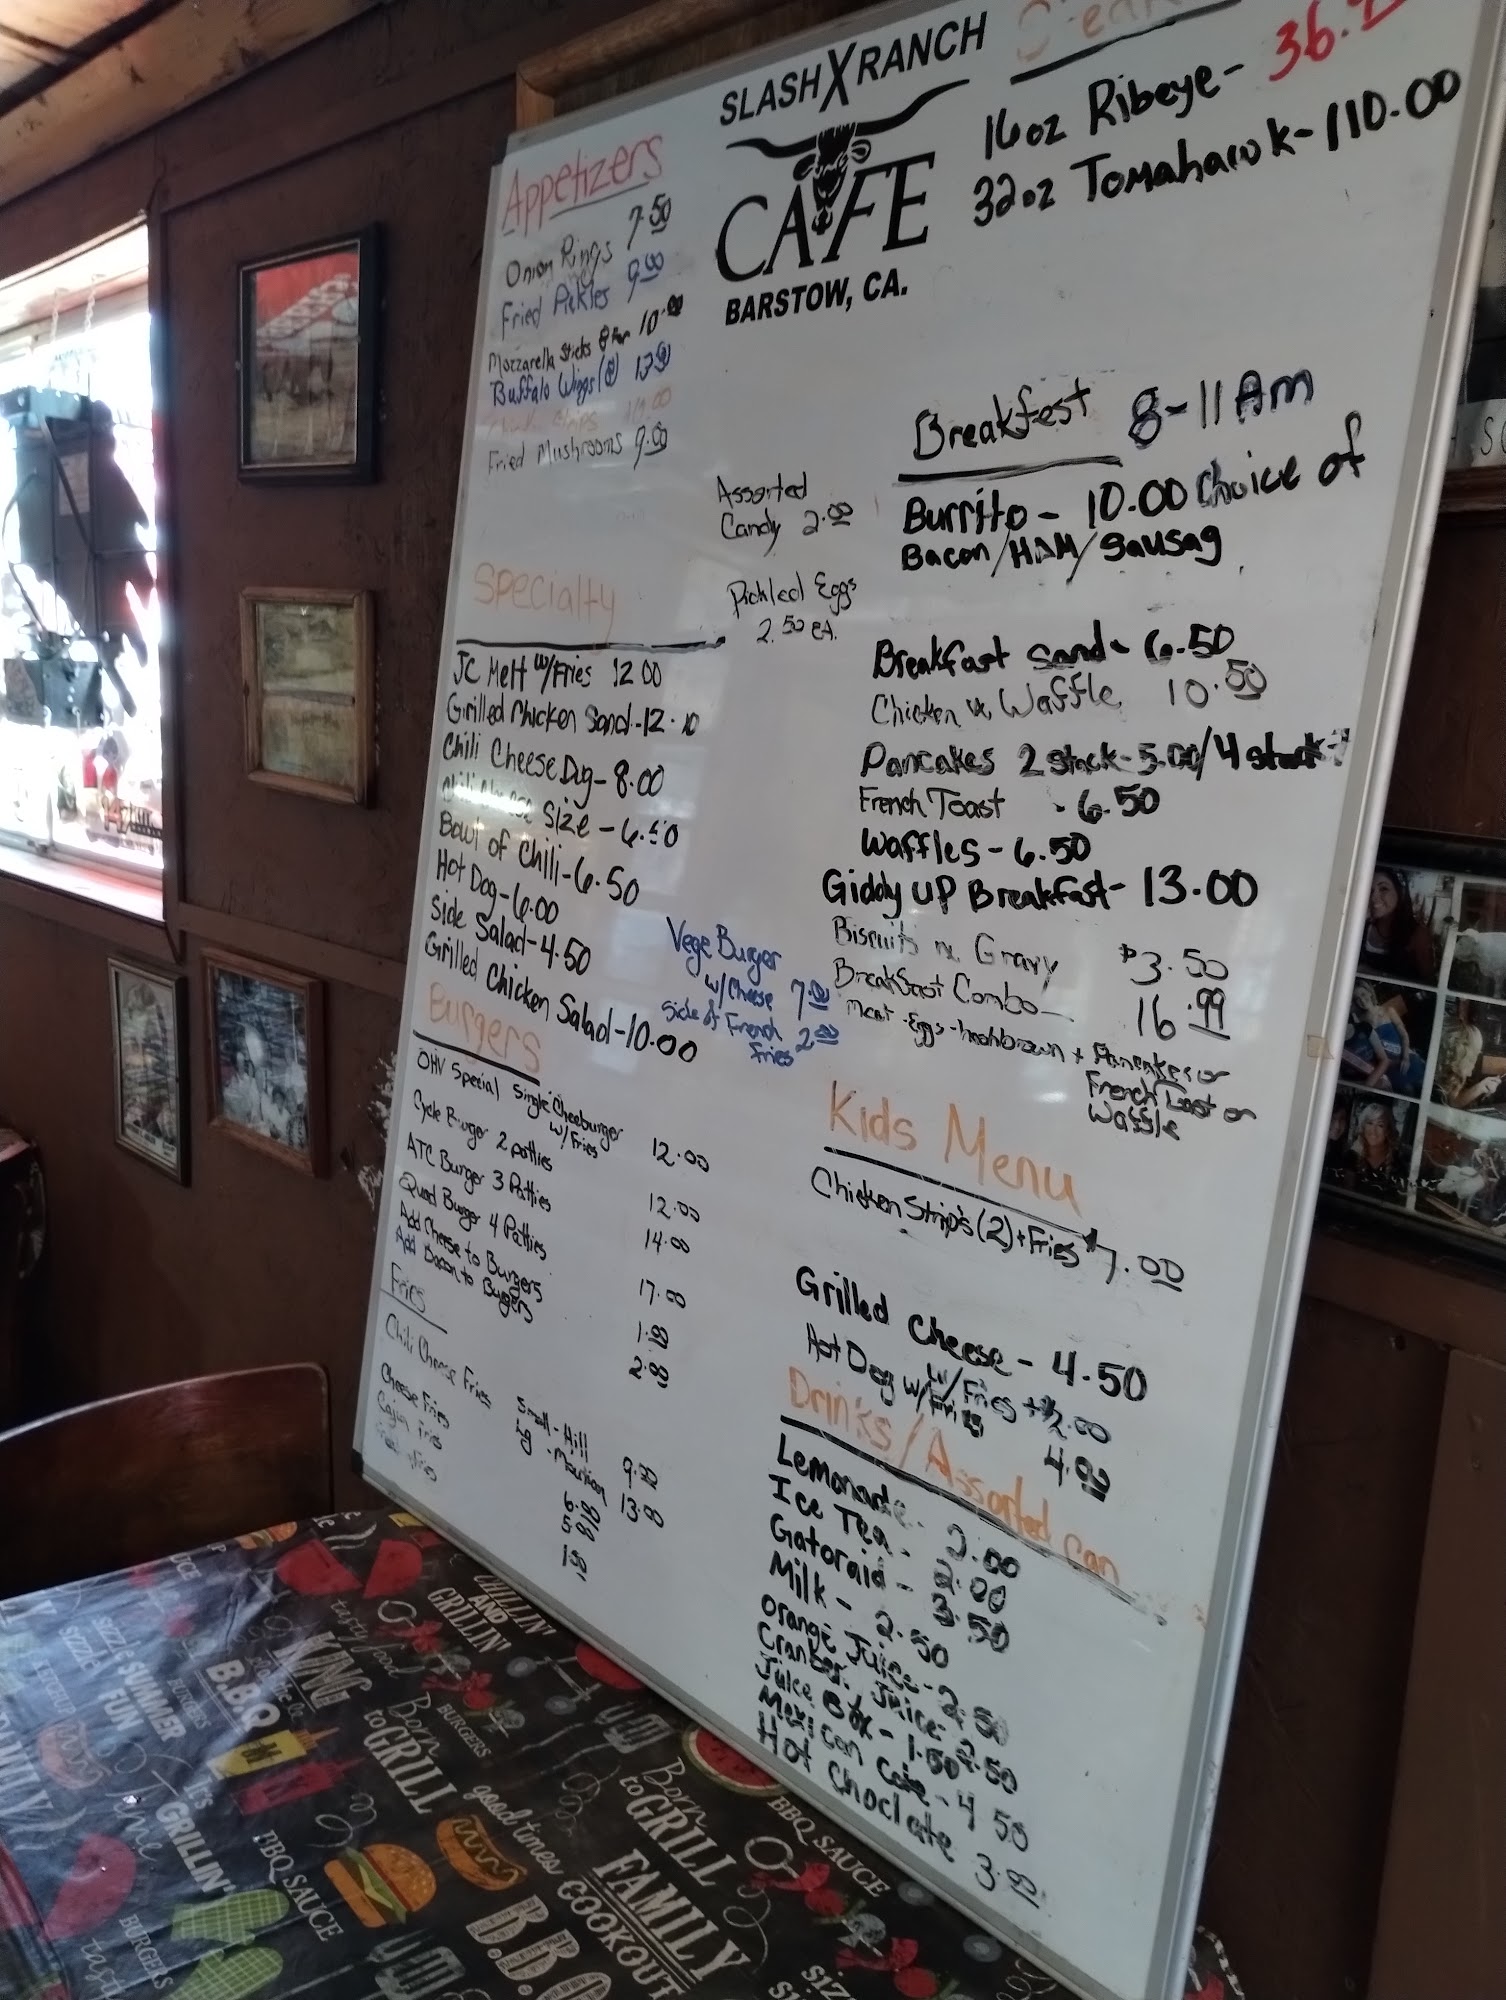 SLASH X RANCH
CAFE
BARSTOW, CA.
16oz Ribeye - 36.
32oz Tomahawk - 110.00
Appetizers
Onion Rings 7.50
Fried Pickles 9.00
Mozzarella Sticks 10.00
Buffalo Wings 13.00
Strips
Fried Mushrooms 9.00
Assorted
Candy 2.00
Pickled Eggs
2.50 ea.
Specialty
JC Melt w/Fries 12.00
Grilled Chicken Sand - 12.
Chili Cheese Dog - 8.00
Size - 6.50
Bowl of Chili - 6.50
Hot Dog - 6.00
Side Salad - 4.50
Grilled Chicken Salad - 10.00
Vege Burger
w/Cheese 7.00
Side of French
Fries 2.00
Burgers
OHV Special Single Cheeburger
w/Fries 12.00
Cycle Burger 2 patties 12.00
ATC Burger 3 Patties 14.00
Quad Burger 4 Patties 17.00
Add Cheese to Burgers 1.00
Add Bacon to Burgers 2.00
Fries
Chili Cheese Fries Small - Hill 9.00
Lg - Mountion 13.00
Cheese Fries 6.00
Cajun Fries 5.
Fries 1.50
Breakfest 8-11 Am
Burrito - 10.00 Choice of
Bacon/HAM/Sausag
Breakfast Sand - 6.50
Chicken & Waffle 10.50
Pancakes 2 stack - 5.00/4 stack -
French Toast - 6.50
Waffles - 6.50
Giddy UP Breakfast - 13.00
Biscuits n Gravy $3.50
Breakfast Combo 16.99
Meat - Eggs - hashbrown + Pancakes or
French Toast or
Waffle
Kids Menu
Chicken Strip's (2) + Fries $7.00
Grilled Cheese - 4.50
w/Fries + $2.00
Hot Dog w/Fries 4.00
Drinks/Assorted Can
Lemonade - 2.00
Ice Tea - 2.00
Gatoraid - 3.50
Milk - 2.50
Orange Juice - 2.50
Cranber. Juice - 2.50
Juice Box - 1.50
Mexican Coke - 4.50
Hot Choclate 3.00
CHILLIN'
AND
GRILLIN'
KING
tasty food
B.B.Q
SUMMER
FUN
BURGERS
Born
to GRILL
BURGERS
IT'S
GRILLIN'
Time
BBQ SAUCE
good times
COOKOUT
Born
to GRILL
FAMILY
BBQ SAUCE
BURGERS
B.B.Q